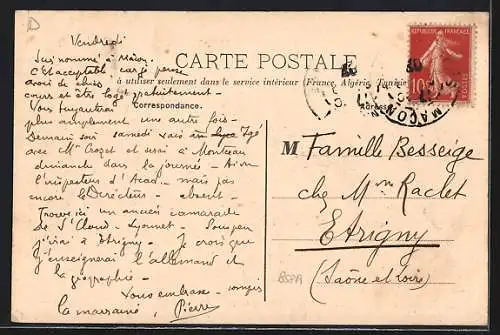 D
Vendredi
CARTE POSTALE
à utiliser seulement dans le service intérieur (France, Algérie, Tunisie
Correspondance.
Adresse
REPUBLIQUE FRANÇAISE
10
MACON
Suis nommé à Mâcon.
C'est acceptable car je pense
avoir de
cours et être logé gratuitement -
Vous
plus amplement une autre fois -
Demain soir samedi vais Igé
avec Mme Crozet et serai à Montceau
dimanche dans la journée - Ai vu
l'inspecteur d'Acad. mais pas
encore le Directeur - absent -
Trouve ici un ancien camarade
de St Cloud - Lyonnet -
j'irai à Etrigny - Je crois que
j'enseignerai l'allemand et
la géographie -
Vous embrasse -
la marraine, Pierre
M Famille Besseige
chez Mme Raclet
Etrigny
(Saône et Loire)
BSPA